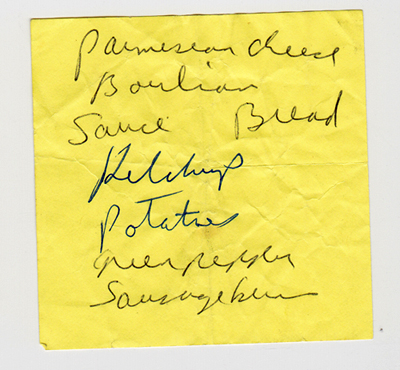 Parmesean cheese
Boulian
Sauce Bread
Ketchup
Potatoes
Green pepper
Sausage buns